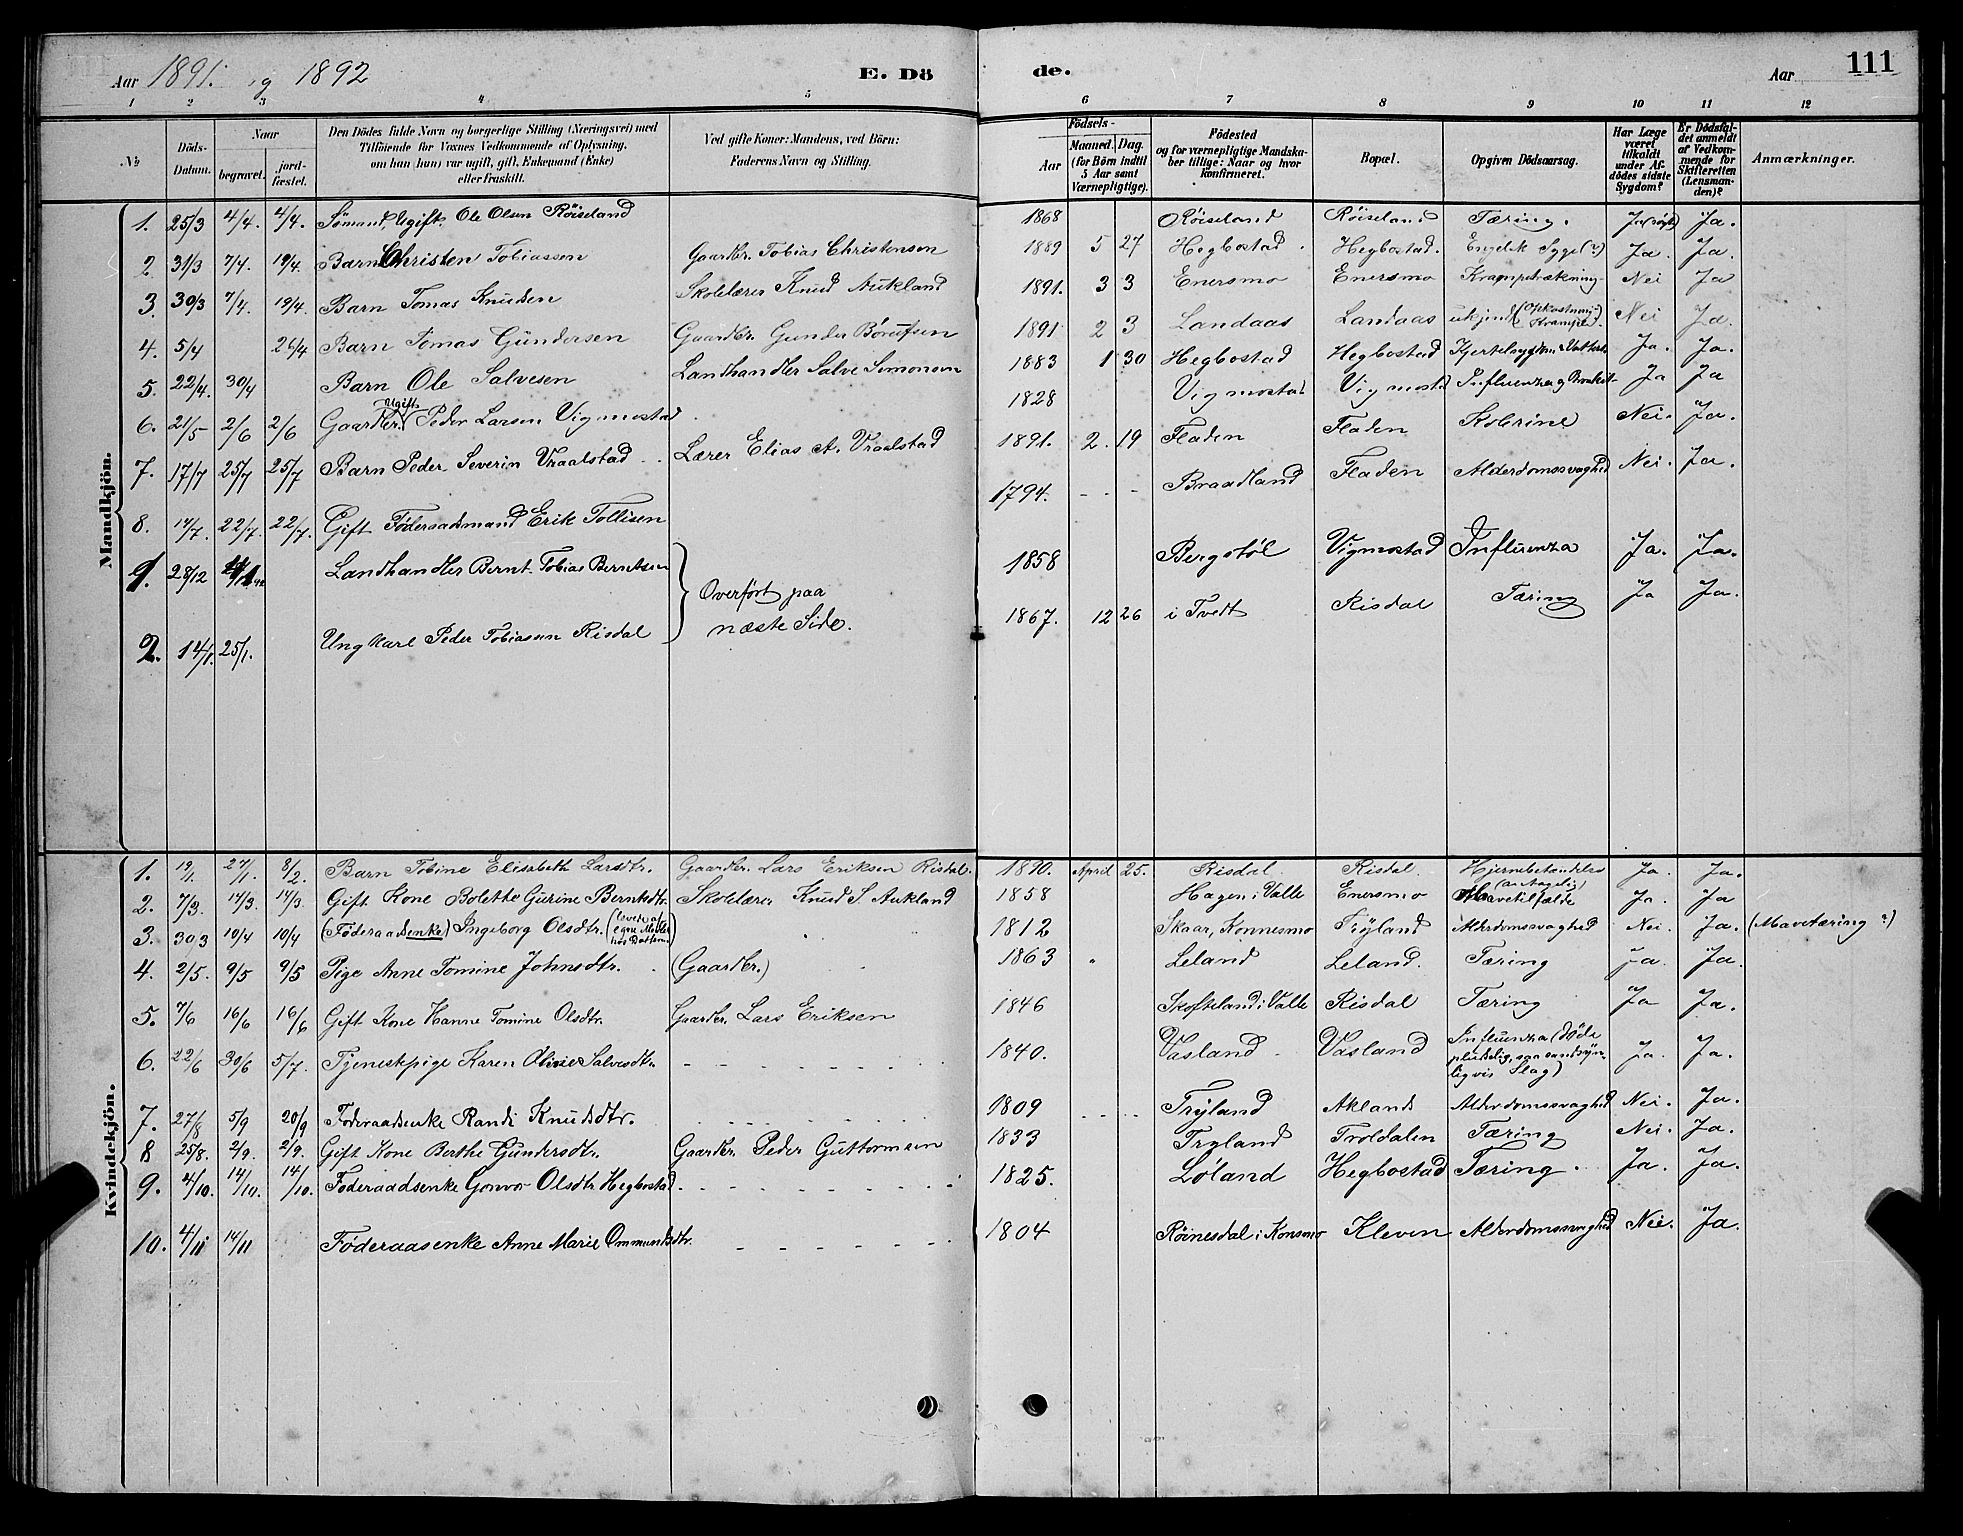 Aar 1891. og 1892 E. Dö de. Aar 111
1 2 3 4 5 6 7 8 9 10 11 12
№ Döds-Datum. Naar begravet. jord-fæstet. Den Dödes fulde Navn og borgerlige Stilling (Næringsvei) med Tilföiende for Voxnes Vedkommende af Oplysning, om han (hun) var ugift, gift, Enkemand (Enke) eller fraskilt. Ved gifte Koner: Mandens, ved Börn: Faderens Navn og Stilling. Födsels- Aar Maaned. Dag. (for Börn indtil 5 Aar samt Værnepligtige). Födested og for værnepligtige Mandskaber tillige: Naar og hvor konfirmeret. Bopæl. Opgiven Dödsaarsag. Har Læge været tilkaldt under Afdödes sidste Sygdom? Er Dödsfaldet anmeldt af Vedkommende for Skifteretten (Lensmanden)? Anmærkninger.
Mandkjön.
1. 25/3 4/4. 4/4. Sømand, Ugift. Ole Olsen Röiseland 1868 Röiseland Röiseland Tæring. Ja Ja.
2 31/3 7/4. 19/4. Barn Christen Tobiassen Gaardbr. Tobias Christensen 1889 5 27 Hegbostad. Hegbostad. Engelsk Syge(?) Ja. Ja.
3. 30/3 7/4. 19/4. Barn Tomas Knudsen Skolelærer Knud Aukland 1891. 3 3 Enersmo Enersmo Krampetrækning Nei Ja
4. 5/4 26/4 Barn Tomas Gundersen Gaardbr. Gunder Börufsen 1891 2 3 Landaas Landaas ukjend (Opkastning Krampe). Nei Ja.
5. 22/4. 30/4 Barn Ole Salvesen Landhandler Salve Simonsen 1883 1 30 Hegbostad Hegbostad Kjertelsygdom Ja. Ja.
6. 21/5 2/6 2/6 Gaardbr. Ugift Peder Larsen Vigmostad. 1828 Vigmostad Vigmostad Influenza og Bronkit Ja Ja
7. 17/7 25/7 25/7 Barn Peder Severin Vraalstad Lærer Elias A. Vraalstad 1891. 2. 19 Fladen Fladen Kolerine Nei. Ja.
8. 14/7. 22/7. 22/7. Gift Föderaadsmand Erik Tollisen 1794. - - - Braadland Fladen Alderdomssvaghed Nei. Ja.
1. 28/12 Landhandler Bernt Tobias Berntsen } Overført paa næste Side. 1858 Bergstøl Vigmostad Influenza Ja. Ja.
2. 14/1. 25/1. Ungkarl Peder Tobiassen Risdal 1867. 12 26 i Tvedt Risdal Tæring Ja Ja.
Kvindekjön.
1. 19/1. 27/1. 8/2. Barn Tobine Elisabeth Larsdtr. Gaardbr. Lars Eriksen Risdal. 1890. April 25. Risdal Risdal. Hjernebetændelse Ja. Ja.
2. 7/3. 14/3. 14/3. Gift Kone Bolette Gurine Berntsdtr. Skolelærer Knud S. Aukland 1858 Hagen i Valle Enersmo Mavetilfælde (antagelig) Ja. Ja
3. 30/3 10/4 10/4 (Föderaadsenke) Ingeborg Olsdtr. (levede af egne Midler hos Datteren) 1812 Skaar, Konnesmo Tryland Alderdomssvaghed Nei. Ja. (Mavetæring?)
4. 2/5. 9/5 9/5 Pige Anne Tomine Johnsdtr. (Gaardbr.) 1863 " Leland Leland. Tæring Ja. Ja.
5. 7/6 16/6 16/6 Gift Kone Hanne Tomine Olsdtr. Gaardbr. Lars Eriksen 1846 Skofteland i Valle Risdal Tæring Ja Ja.
6. 22/6 30/6 5/7. Tjenestepige Karen Olivie Salvesdtr. 1840. Vasland Vasland Influenza (Døde pludselig, saa sandsynligvis Slag) Ja. Ja.
7. 27/8 5/9 20/9 Föderaadsenke Randi Knudsdtr. 1809 Tryland Akland Alderdomssvaghed Nei. Ja.
8 25/8. 2/9. 2/9. Gift Kone Berthe Gundersdtr. Gaardbr. Peder Guttormsen 1833 Tryland Troldalen Tæring Nei. Ja.
9. 4/10. 14/10. 14/10. Föderaadsenke Gonvor Olsdtr Hegbostad 1825. Løland Hegbostad Tæring. Ja. Ja.
10. 4/11 14/11 Föderaasenke Anne Marie Ommundsdtr. 1804 Röinesdal i Konsmo Kleven Alderdomssvaghed Nei. Ja.